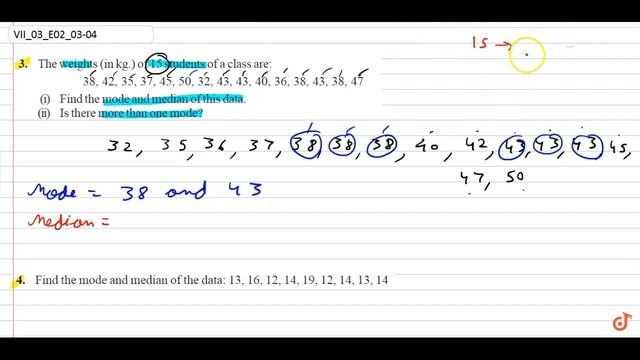 VII_03_E02_03-04
15 →
3. The weights (in kg.) of 15 students of a class are:
38, 42, 35, 37, 45, 50, 32, 43, 43, 40, 36, 38, 43, 38, 47
(i) Find the mode and median of this data.
(ii) Is there more than one mode?
32, 35, 36, 37, 38, 38, 38, 40, 42, 43, 43, 43, 45,
47, 50
Mode = 38 and 43
Median =
4. Find the mode and median of the data: 13, 16, 12, 14, 19, 12, 14, 13, 14